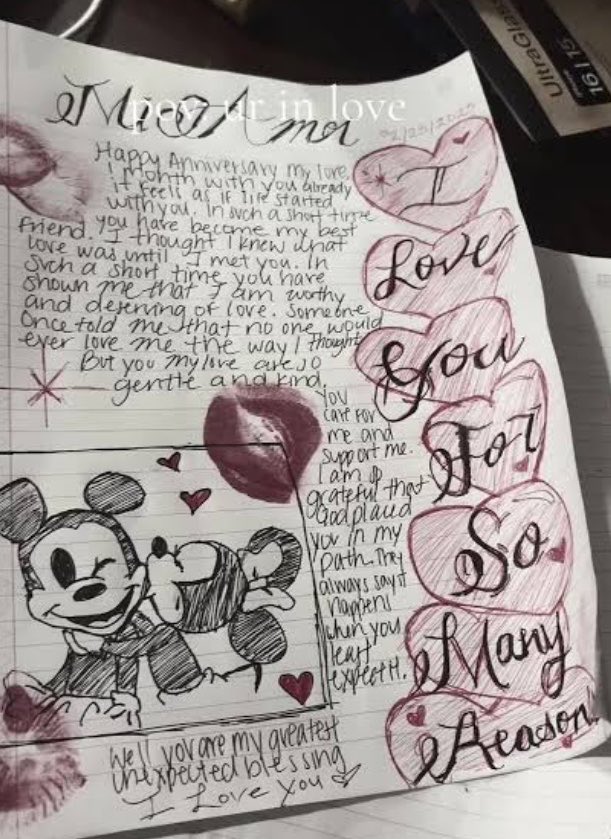 UltraGlass
16 | 15
Mi Amor
pov ur in love
02/25/2025
Happy Anniversary my love.
1 Month with you already
it feels as if life started
with you. In such a short time
you have become my best
friend. I thought I knew what
love was until I met you. In
such a short time you have
shown me that I am worthy
and deserving of love. Someone
once told me that no one would
ever love me the way I thought
But you my love are so
gentle and kind.
You
care for
me and
support me.
I am so
grateful that
God placed
you in my
path. They
always say it
happens
when you
least
expect it.
Well you are my greatest
unexpected blessing
I Love you
I
Love
You
For
So
Many
Reason